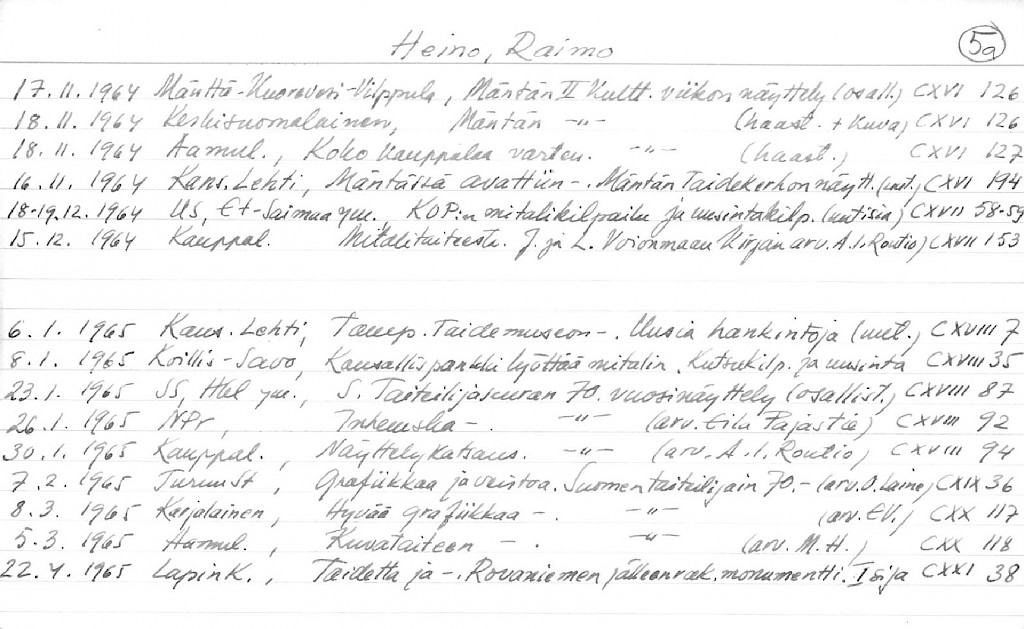 Heino, Raimo
5a
17.11.1964 Mänttä-Kuorevesi-Vilppula, Mäntän II Kultt. viikon näyttely (osall.) CXVI 126
18.11.1964 Keskisuomalainen, Mäntän -"- (haast. + kuva) CXVI 126
18.11.1964 Aamul., Koko kauppalaa varten. -"- (haast.) CXVI 127
16.11.1964 Kans. Lehti, Mäntässä avattiin-. Mäntän Taidekerhon näytt. (uut.) CXVI 194
18-19.12.1964 US, Et-Saimaa ym., KOP:n mitalikilpailu ja uusintakilp. (uutisia) CXVII 58-59
15.12.1964 Kauppal. Mitalitaiteesta. J. ja L. Voionmaan kirjan arv. A.I. Routio) CXVII 153
6.1.1965 Kans. Lehti, Tamp. Taidemuseon-. Uusia hankintoja (uut.) CXVIII 7
8.1.1965 Koillis-Savo, Kansallispankki lyöttää mitalin. Kutsukilp. ja uusinta CXVIII 35
23.1.1965 SS, Hbl ym., S. Taiteilijaseuran 70. vuosinäyttely (osallist.) CXVIII 87
26.1.1965 NPr, -. -"- (arv. Eila Pajastie) CXVIII 92
30.1.1965 Kauppal., Näyttelykatsaus. -"- (arv. A.I. Routio) CXVIII 94
7.2.1965 TurunSt, Grafiikkaa ja veistoa. Suomen taiteilijain 70.- (arv. O. Laine) CXIX 36
8.3.1965 Karjalainen, Hyvää grafiikkaa -. -"- (arv. EV.) CXX 117
5.3.1965 Aamul., Kuvataiteen -. -"- (arv. M.H.) CXX 118
22.4.1965 Lapin K., Taidetta ja -. Rovaniemen jälleenrak. monumentti. I sija CXXI 38